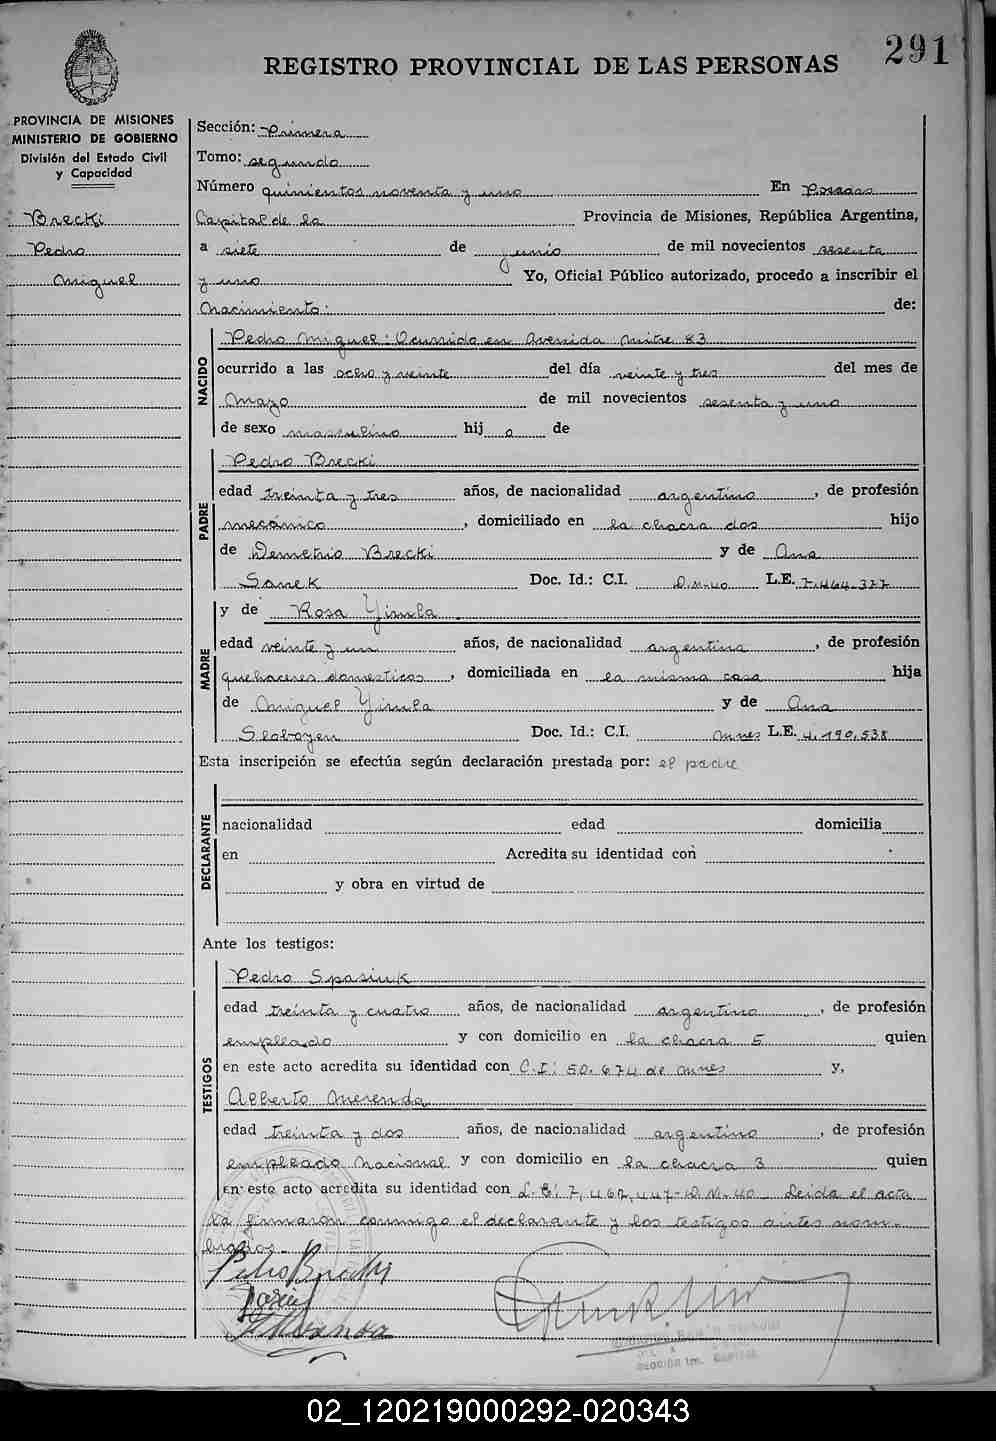 291
REGISTRO PROVINCIAL DE LAS PERSONAS
PROVINCIA DE MISIONES
MINISTERIO DE GOBIERNO
División del Estado Civil
y Capacidad
Brecki
Pedro
Miguel
Sección: Primera
Tomo: segundo
Número quinientos noventa y uno En Posadas
Capital de la Provincia de Misiones, República Argentina,
a siete de junio de mil novecientos sesenta
y uno Yo, Oficial Público autorizado, procedo a inscribir el
Nacimiento: de:
NACIDO
Pedro Miguel: Ocurrido en Avenida Mitre 83
ocurrido a las ocho y veinte del día veinte y tres del mes de
Mayo de mil novecientos sesenta y uno
de sexo masculino hij o de
PADRE
Pedro Brecki
edad treinta y tres años, de nacionalidad argentino, de profesión
mecánico, domiciliado en la chacra dos hijo
de Demetrio Brecki y de Ana
Sanek Doc. Id.: C.I. D.M.40 L.E. 7.464.377
MADRE
y de Rosa Yimla
edad veinte y un años, de nacionalidad argentina, de profesión
quehaceres domesticos, domiciliada en la misma casa hija
de Miguel Yimla y de Ana
Doc. Id.: C.I. Mnes L.E. 4.190.538
Esta inscripción se efectúa según declaración prestada por: el padre
DECLARANTE
nacionalidad edad domicilia
en Acredita su identidad con
y obra en virtud de
Ante los testigos:
TESTIGOS
Pedro Spasiuk
edad treinta y cuatro años, de nacionalidad argentino, de profesión
empleado y con domicilio en la chacra 5 quien
en este acto acredita su identidad con C.I: 50.674 de Mnes y,
Alberto Merenda
edad treinta y dos años, de nacionalidad argentino, de profesión
empleado Nacional y con domicilio en la chacra 3 quien
en este acto acredita su identidad con L.E: 7.467.447-D.M.40 Leida el acta
la firmaron conmigo el declarante y los testigos antes nom-
brados.
Pedro Brecki
02_120219000292-020343